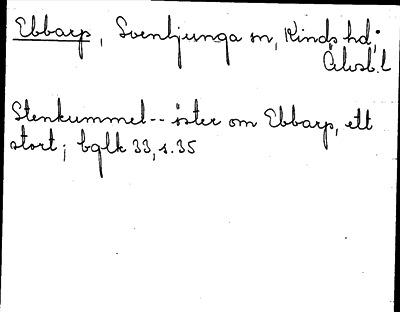 Ebbarp, Svenljunga sn, Kinds hd;
Älvsb. l
Stenkummel -- öster om Ebbarp, ett
stort; bglk 33, s. 35